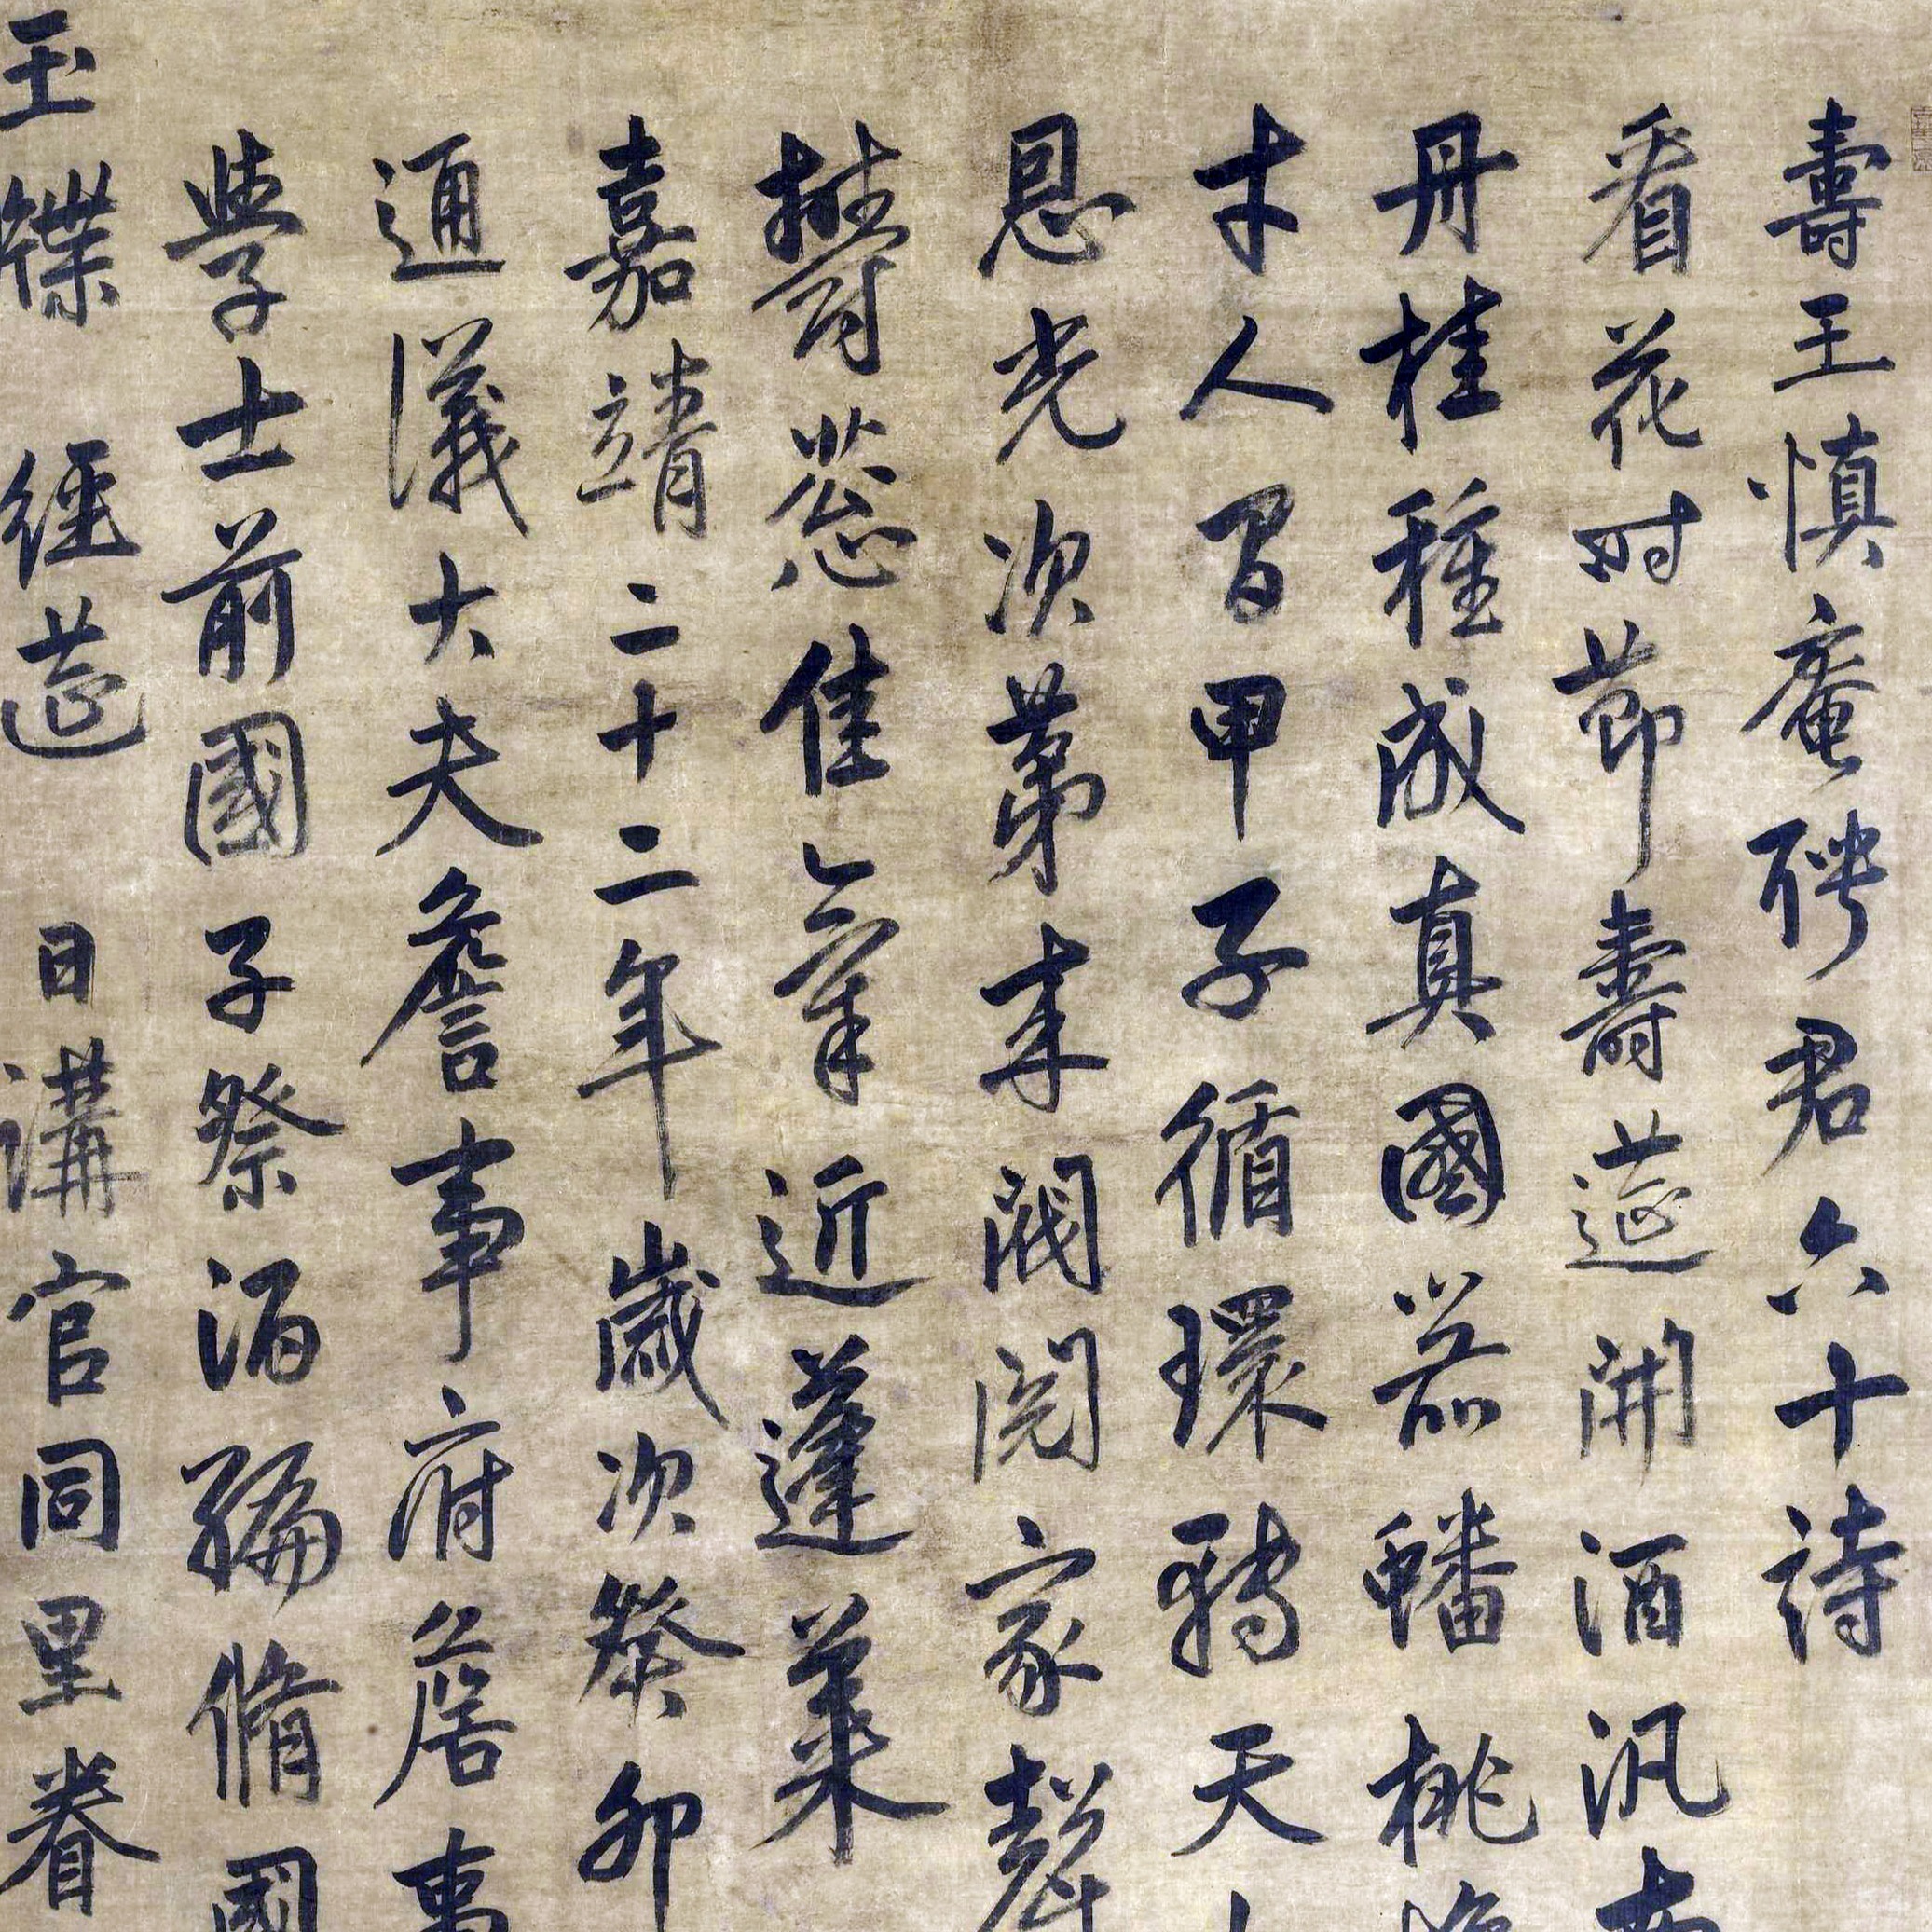 壽王慎庵聘君六十詩
看花時節壽筵開酒汎
丹桂種成真國器蟠桃
才人間甲子循環轉天
恩光次第來閥閱家聲
欝葱佳氣近蓬萊
嘉靖二十二年歲次癸卯
通議大夫詹事府詹事
學士前國子祭酒編脩國
玉牒經筵日講官同里眷